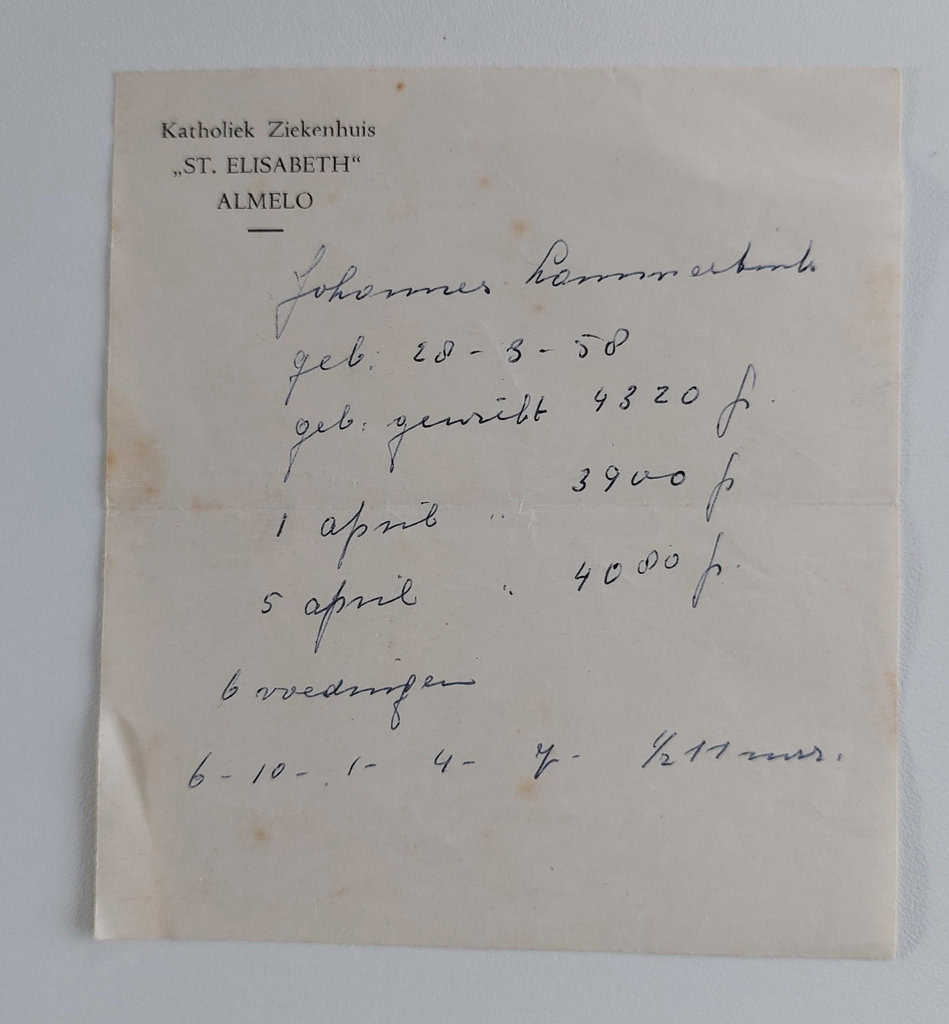 Katholiek Ziekenhuis
„ST. ELISABETH“
ALMELO
Johannes
geb: 28 - 3 - 58
geb: gewicht 4320 gr.
1 april " 3900 gr
5 april " 4080 gr.
6 voedingen
6 - 10 - 1 - 4 - 7 - 1/2 11 uur.